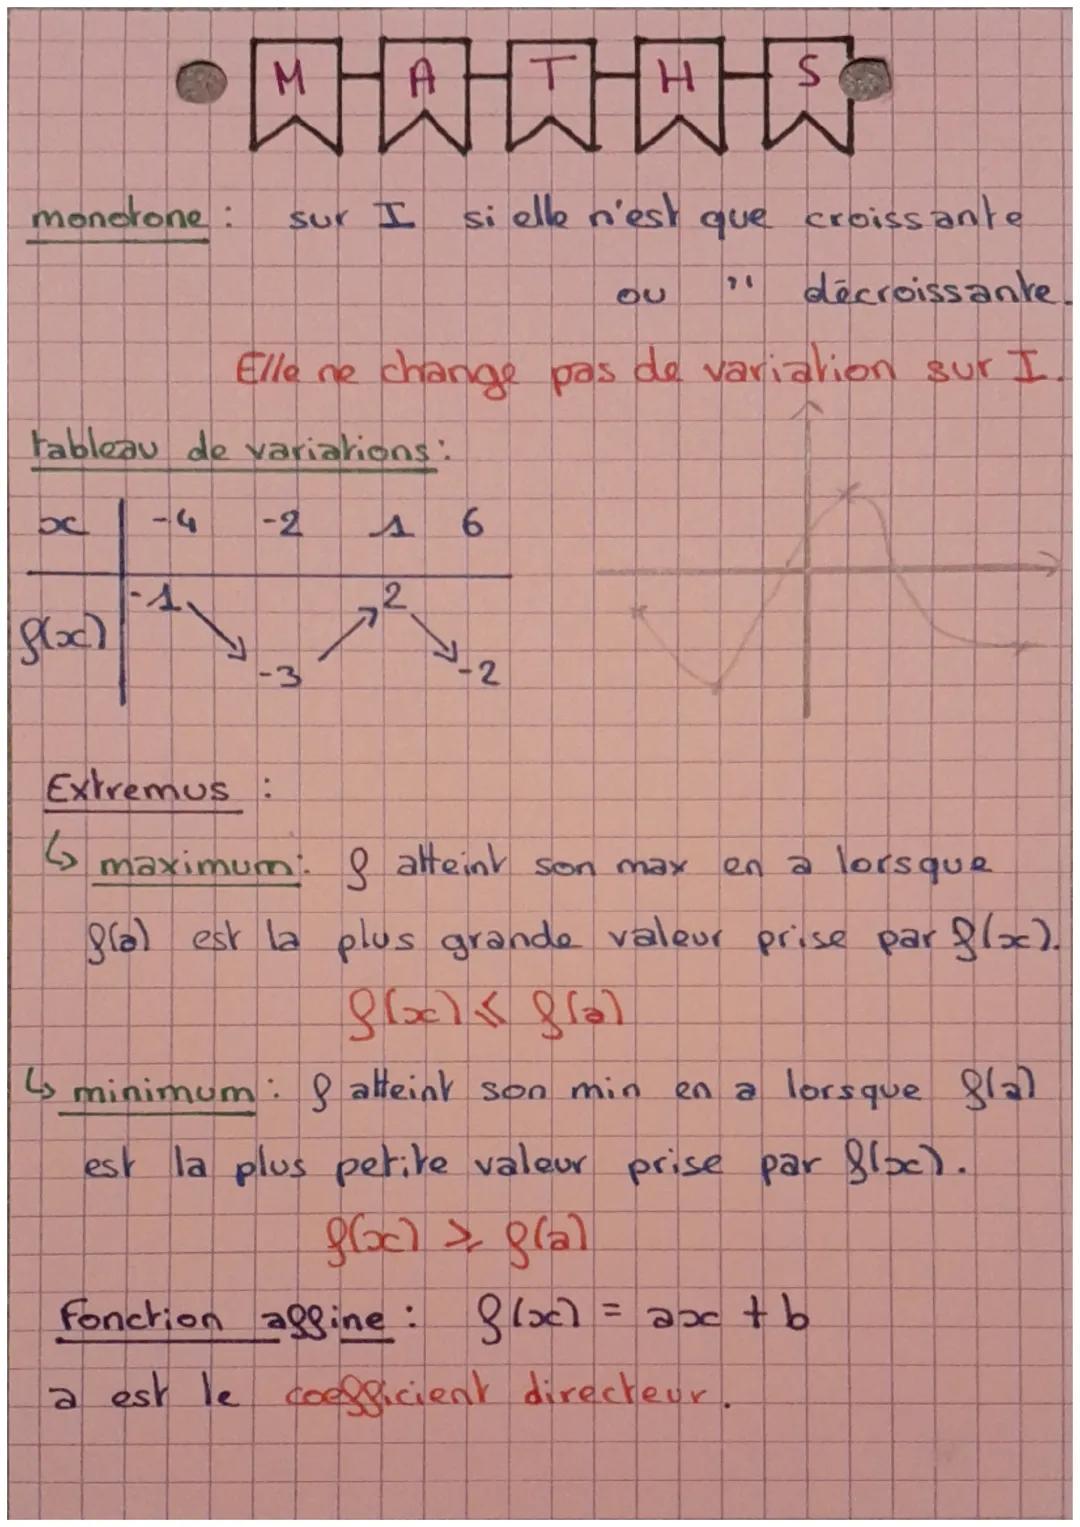 MATHS
monotone : sur I si elle n'est que croissante
ou " décroissante.
Elle ne change pas de variation sur I.
tableau de variations :
x -4 -2 1 6
f(x) -1 -3 2 -2
Extremus :
↳ maximum : f atteint son max en a lorsque
f(a) est la plus grande valeur prise par f(x).
f(x) ⩽ f(a)
↳ minimum : f atteint son min en a lorsque f(a)
est la plus petite valeur prise par f(x).
f(x) ⩾ f(a)
Fonction affine : f(x) = ax + b
a est le coefficient directeur.